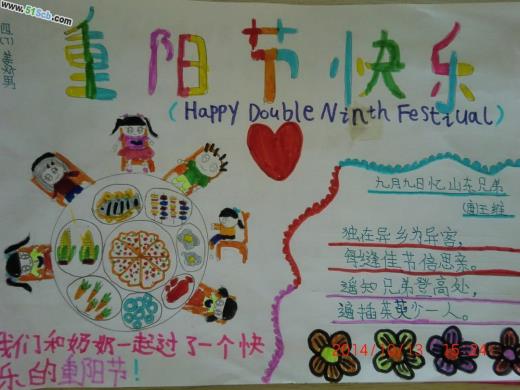 www.51Scb.com
重阳节快乐
(Happy Double Ninth Festiual)
九月九日忆山东兄弟
(唐)王维
独在异乡为异客,
每逢佳节倍思亲。
遥知兄弟登高处,
遍插茱萸少一人。
我们和奶奶一起过了一个快
乐的重阳节!
2014/10/13